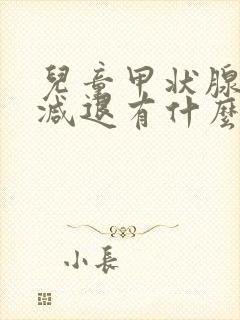 兒童甲状腺
減退有什麼
小長